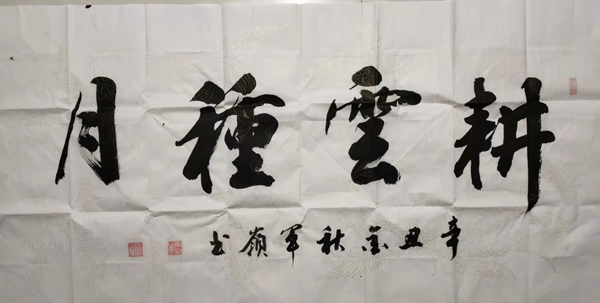 耕雲種月
辛丑金秋军嶺书